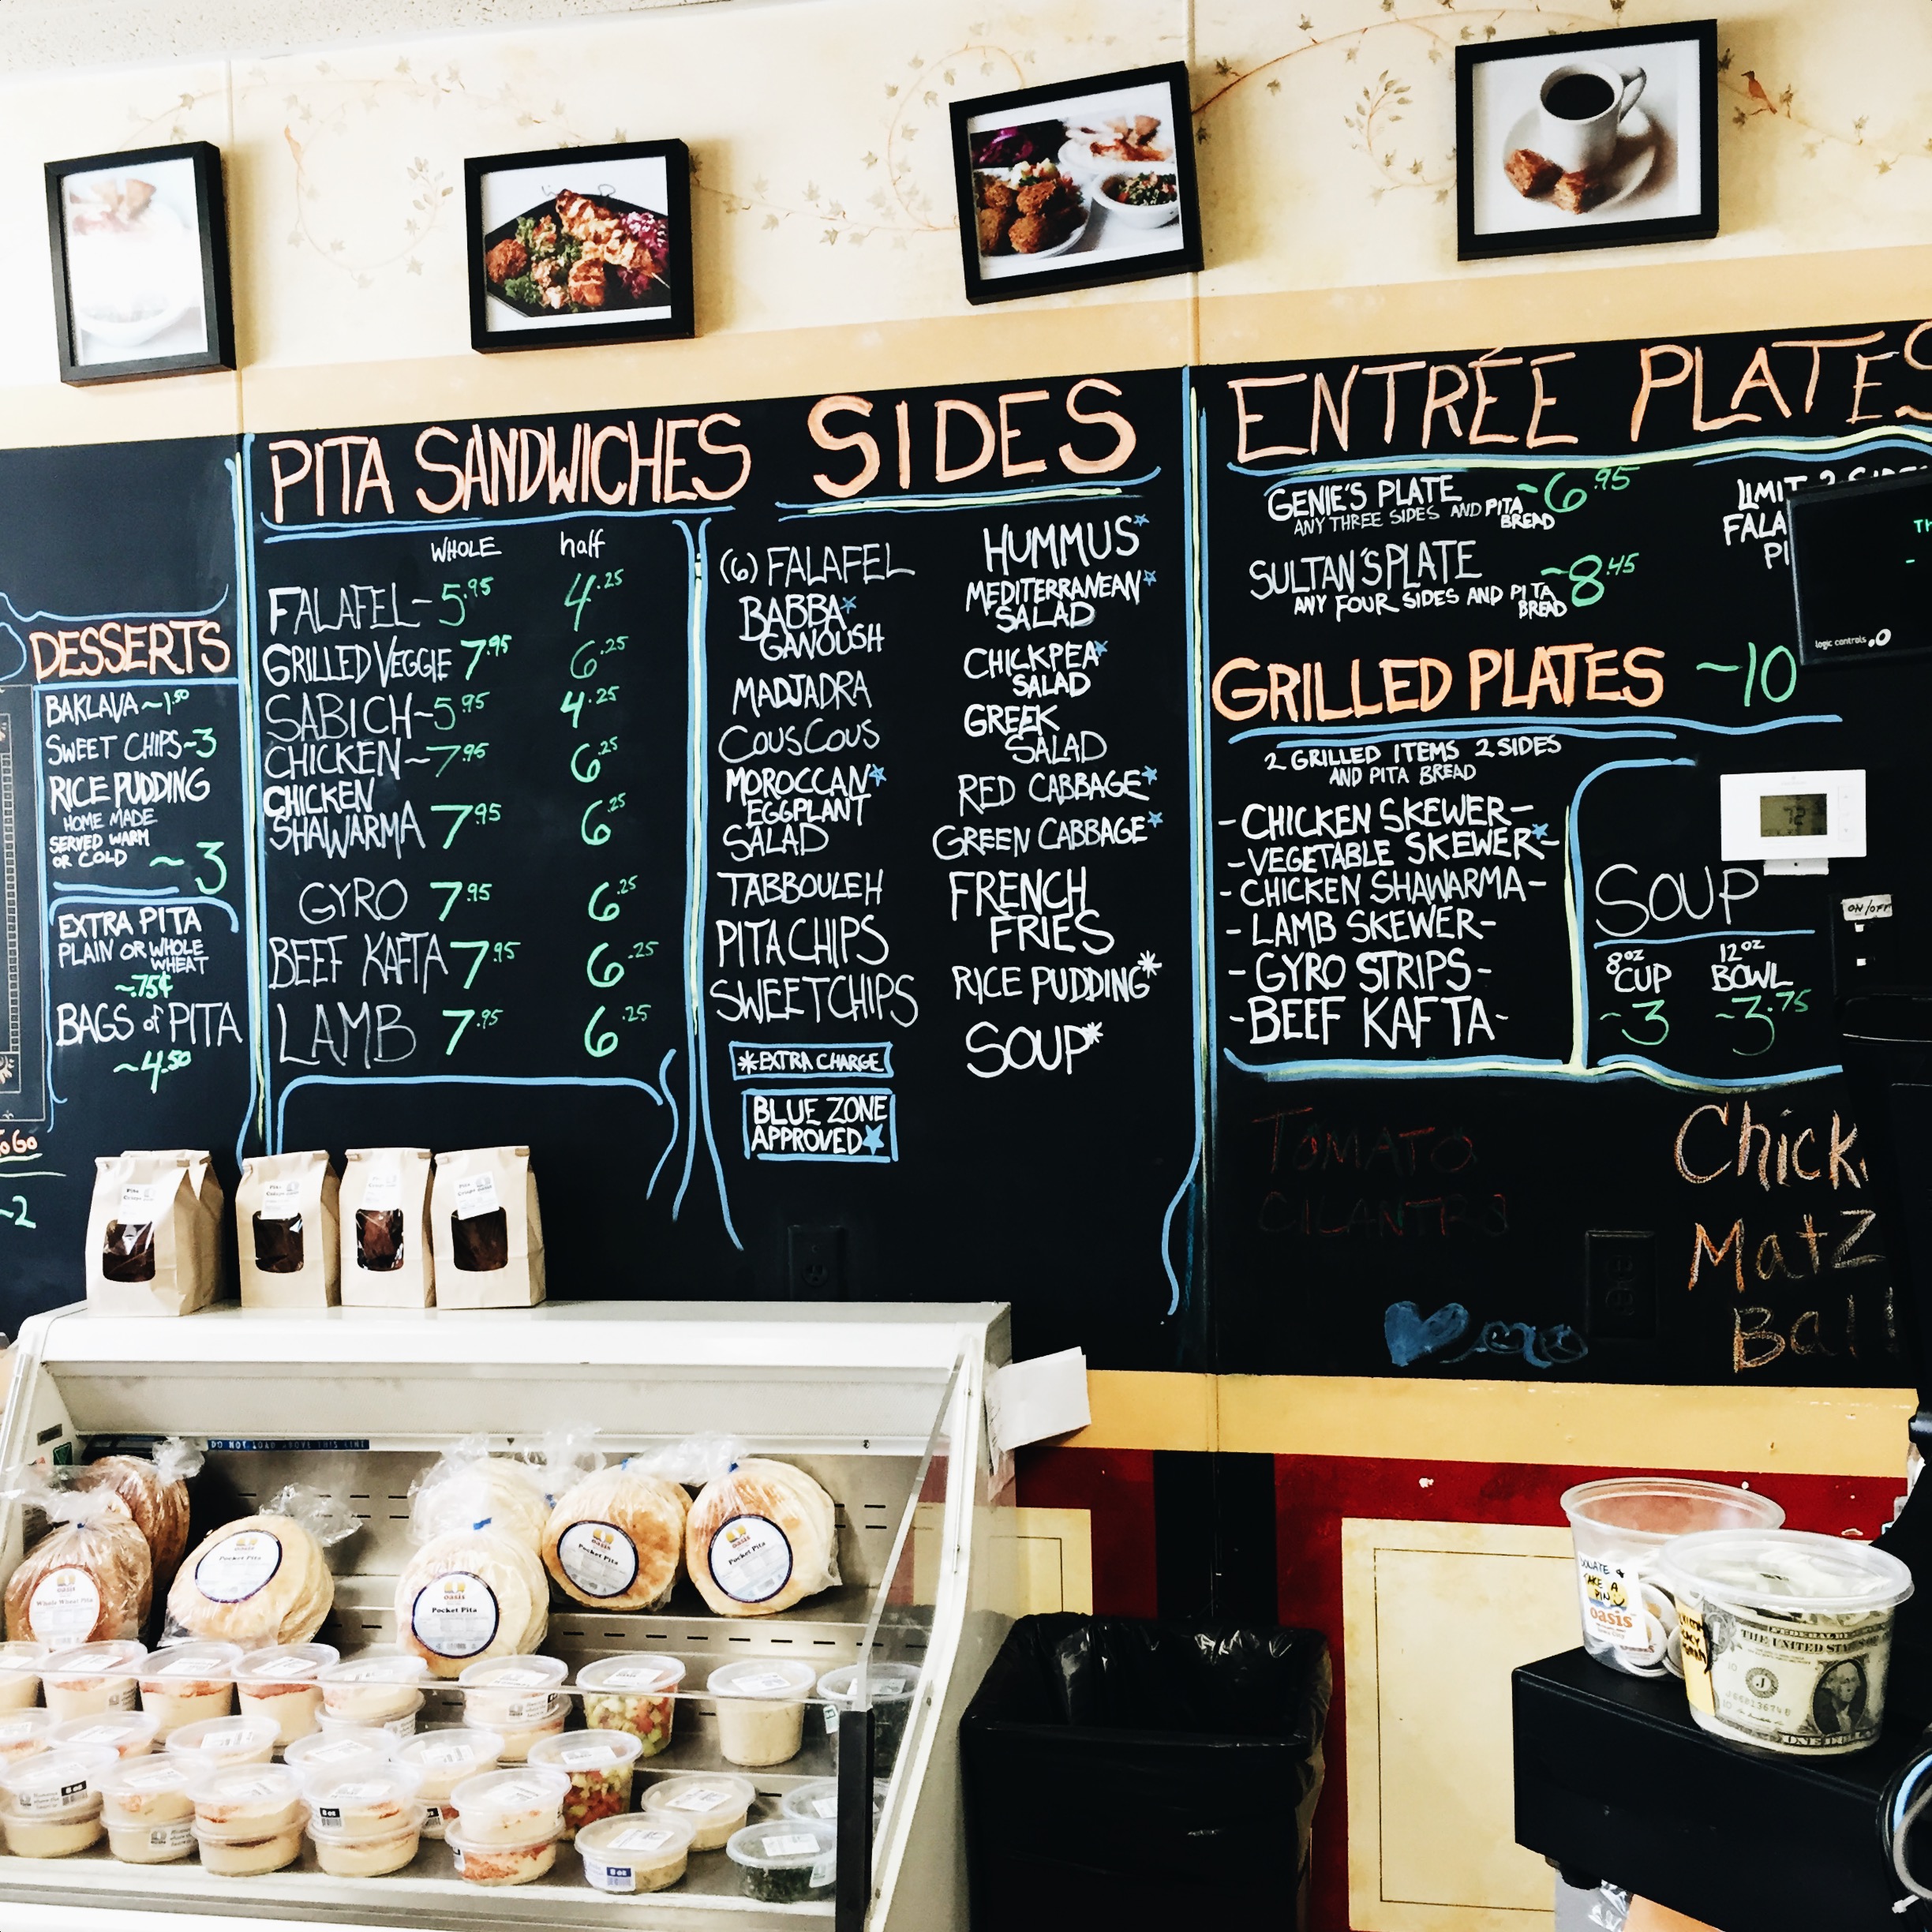 DESSERTS
BAKLAVA ~1.50
SWEET CHIPS ~3
RICE PUDDING
HOME MADE
SERVED WARM
OR COLD ~3
EXTRA PITA
PLAIN OR WHOLE
WHEAT
~.75¢
BAGS of PITA
~4.50
TO GO
~2
PITA SANDWICHES
WHOLE half
FALAFEL ~ 5.95 4.25
GRILLED VEGGIE 7.95 6.25
SABICH ~ 5.95 4.25
CHICKEN ~ 7.95 6.25
CHICKEN
SHAWARMA 7.95 6.25
GYRO 7.95 6.25
BEEF KAFTA 7.95 6.25
LAMB 7.95 6.25
SIDES
(6) FALAFEL
BABBA★
GANOUSH
MADJADRA
COUSCOUS
MOROCCAN★
EGGPLANT
SALAD
TABBOULEH
PITA CHIPS
SWEET CHIPS
*EXTRA CHARGE
BLUE ZONE
APPROVED★
HUMMUS★
MEDITERRANEAN★
SALAD
CHICKPEA★
SALAD
GREEK
SALAD
RED CABBAGE★
GREEN CABBAGE★
FRENCH
FRIES
RICE PUDDING*
SOUP*
ENTRÉE PLATES
GENIE'S PLATE ~6.95
ANY THREE SIDES AND PITA
BREAD
SULTAN'S PLATE ~8.45
ANY FOUR SIDES AND PITA
BREAD
LIMIT 2 SIDES
FALA
PI
GRILLED PLATES ~10
2 GRILLED ITEMS 2 SIDES
AND PITA BREAD
-CHICKEN SKEWER-
-VEGETABLE SKEWER★-
-CHICKEN SHAWARMA-
-LAMB SKEWER-
-GYRO STRIPS-
-BEEF KAFTA-
SOUP
8oz 12oz
CUP BOWL
~3 ~3.75
TOMATO
CILANTRO
Chick
MatZ
Ball
logic controls
72
ON/OFF
DO NOT LOAD ABOVE THIS LINE
oasis
Whole Wheat Pita
oasis
Pocket Pita
oasis
Pocket Pita
oasis
Pocket Pita
oasis
Pocket Pita
8 oz
8 oz
DONATE &
TAKE A
PIN
oasis
FEDERAL RESERVE
THE UNITED STATES OF
ONE DOLLAR